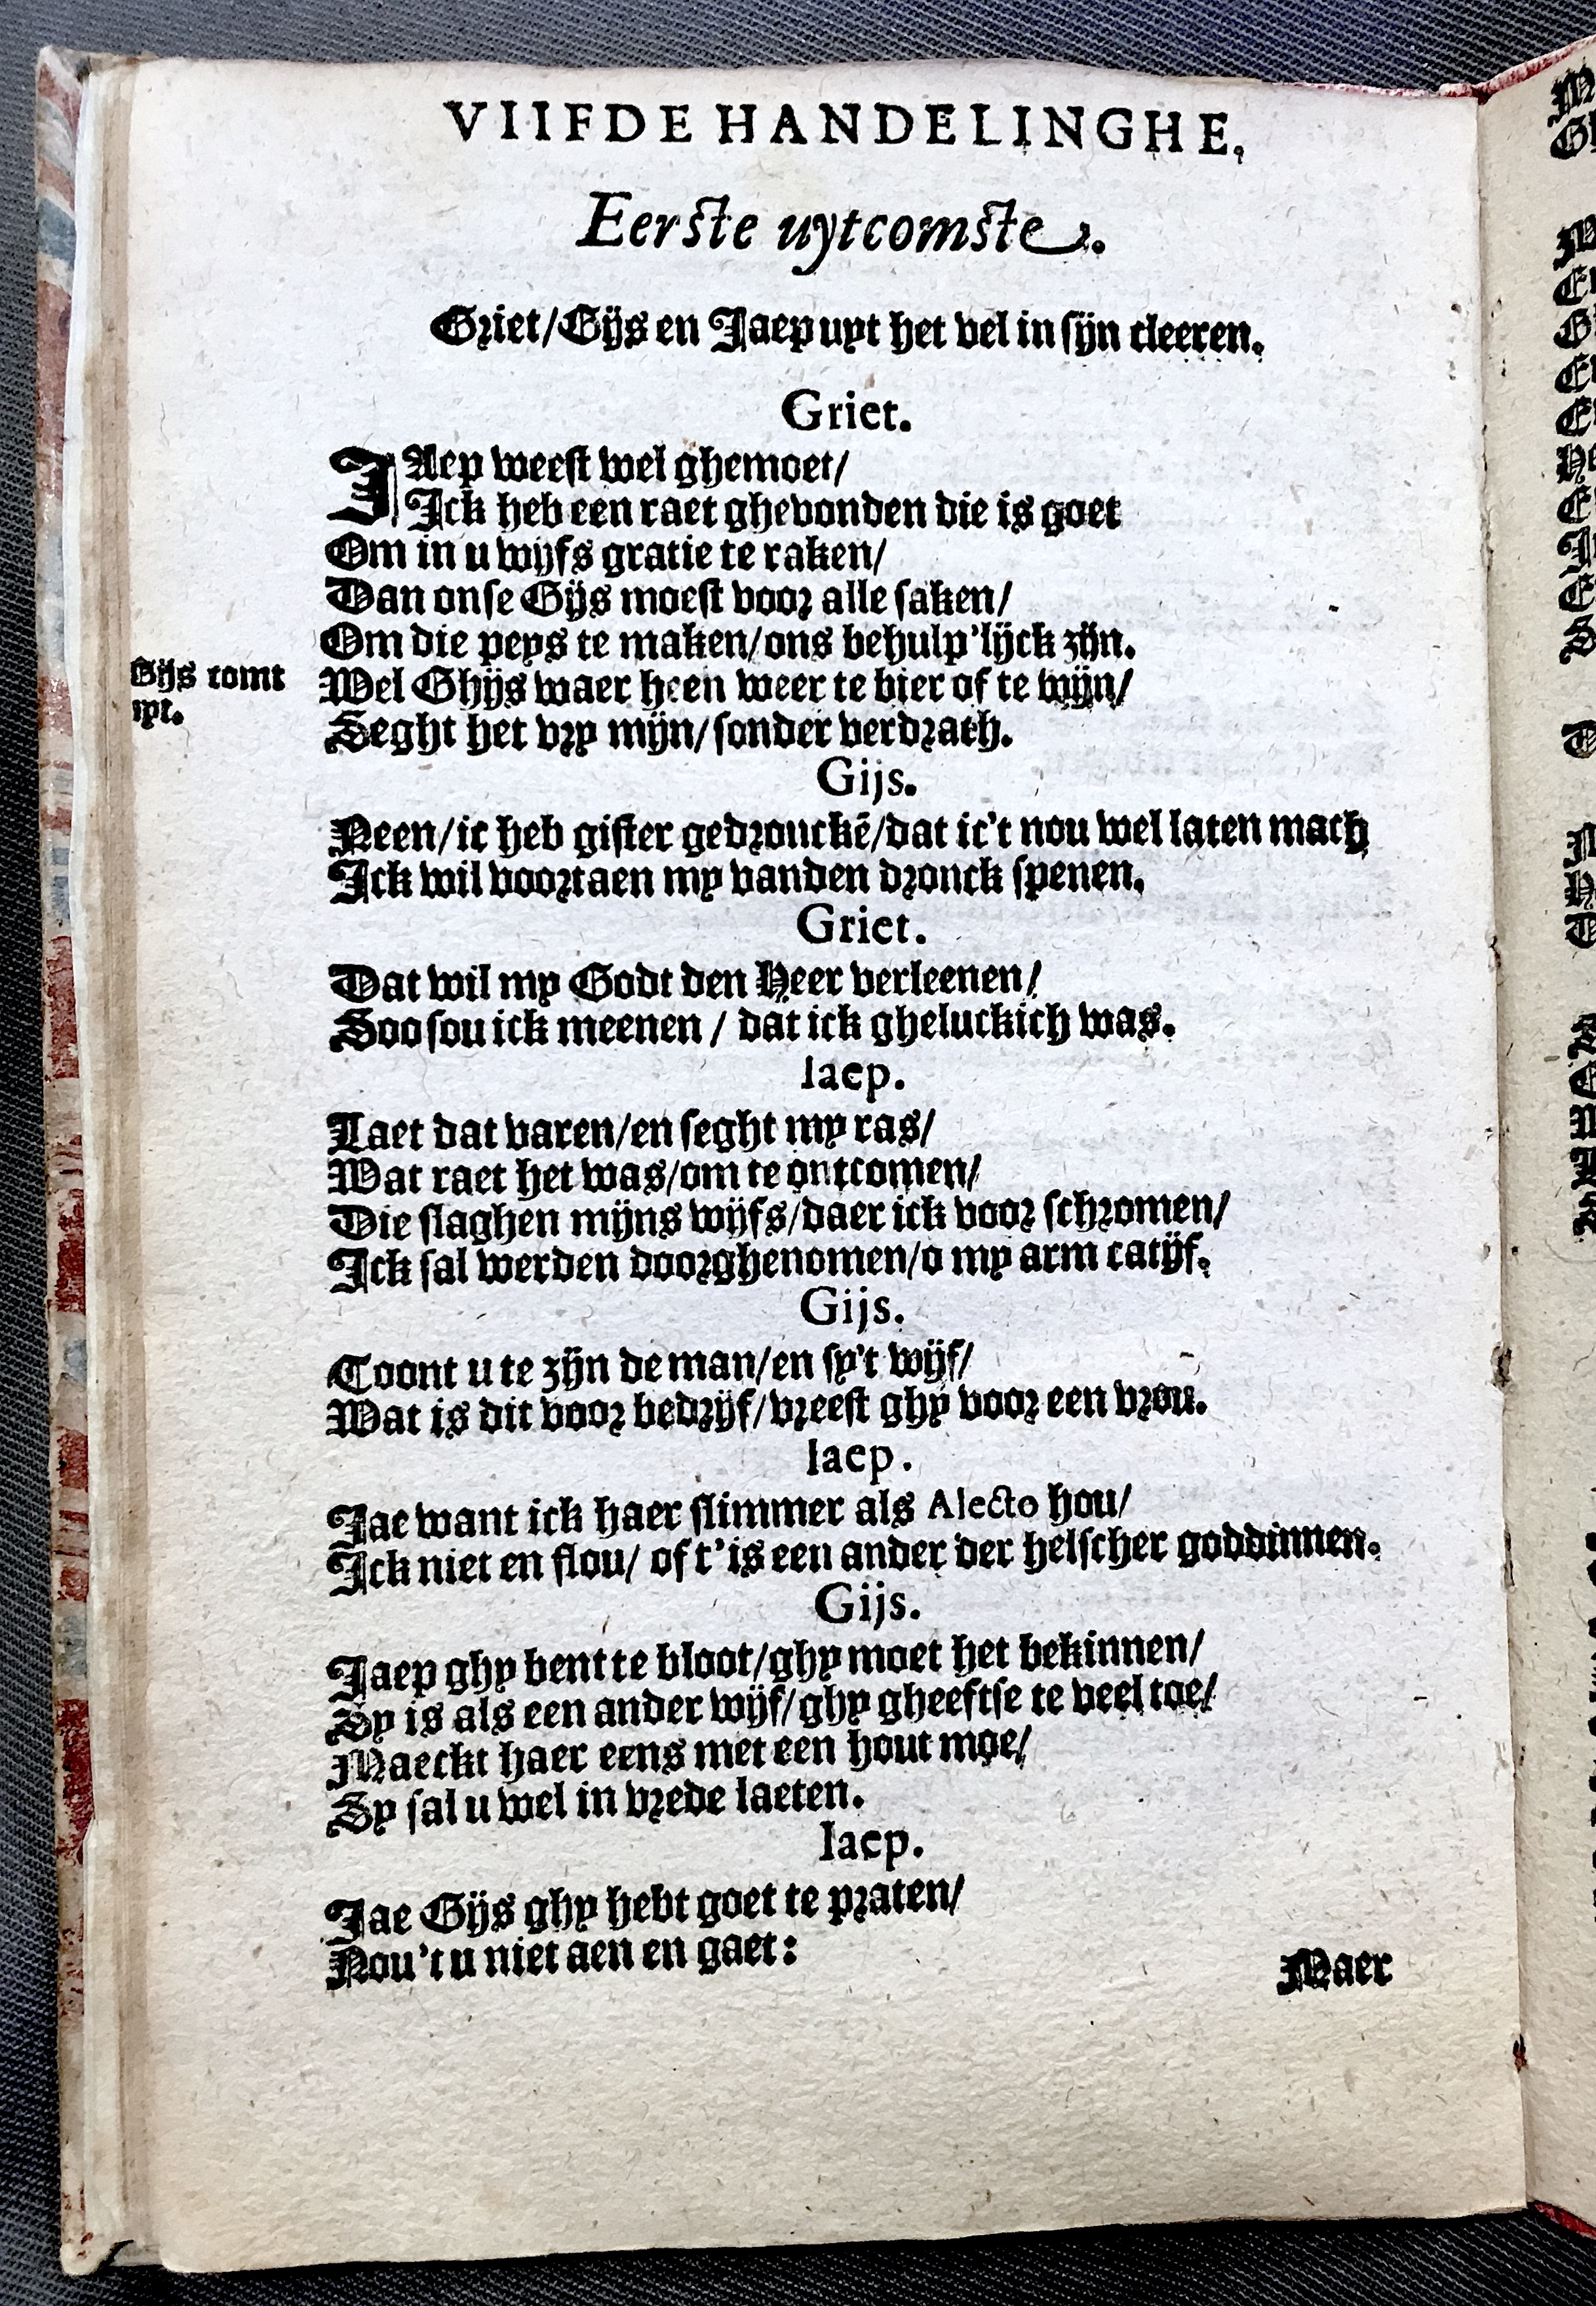 VIIFDE HANDELINGHE.
Eerste uytcomste.
Griet/Gijs en Jaep uyt het vel in sijn cleeren.
Griet.
JAep weest wel ghemoet/
Ick heb een raet ghevonden die is goet
Om in u wijfs gratie te raken/
Dan onse Gijs moest voor alle saken/
Om die peys te maken/ons behulp'lijck zijn.
Gijs comt
uyt.
Wel Ghijs waer heen weer te bier of te wijn/
Seght het vry mijn/sonder verdrach.
Gijs.
Neen/ic heb gister gedronckē/dat ic't nou wel laten mach
Ick wil voortaen my vanden dronck spenen.
Griet.
Dat wil my Godt den Heer verleenen/
Soo sou ick meenen / dat ick gheluckich was.
Iaep.
Laet dat varen/en seght my ras/
Wat raet het was/om te ontcomen/
Die slaghen mijns wijfs/daer ick voor schromen/
Ick sal werden doorghenomen/o my arm catijf.
Gijs.
Toont u te zijn de man/en sy't wijf/
Wat is dit voor bedrijf/vreest ghy voor een vrou.
Iaep.
Jae want ick haer slimmer als Alecto hou/
Ick niet en flou/ of t'is een ander der helscher goddinnen.
Gijs.
Jaep ghy bent te bloot/ghy moet het bekinnen/
Sy is als een ander wijf/ghy gheeftse te veel toe/
Maeckt haer eens met een hout moe/
Sy sal u wel in vrede laeten.
Iaep.
Jae Gijs ghy hebt goet te praten/
Nou't u niet aen en gaet:
Maer